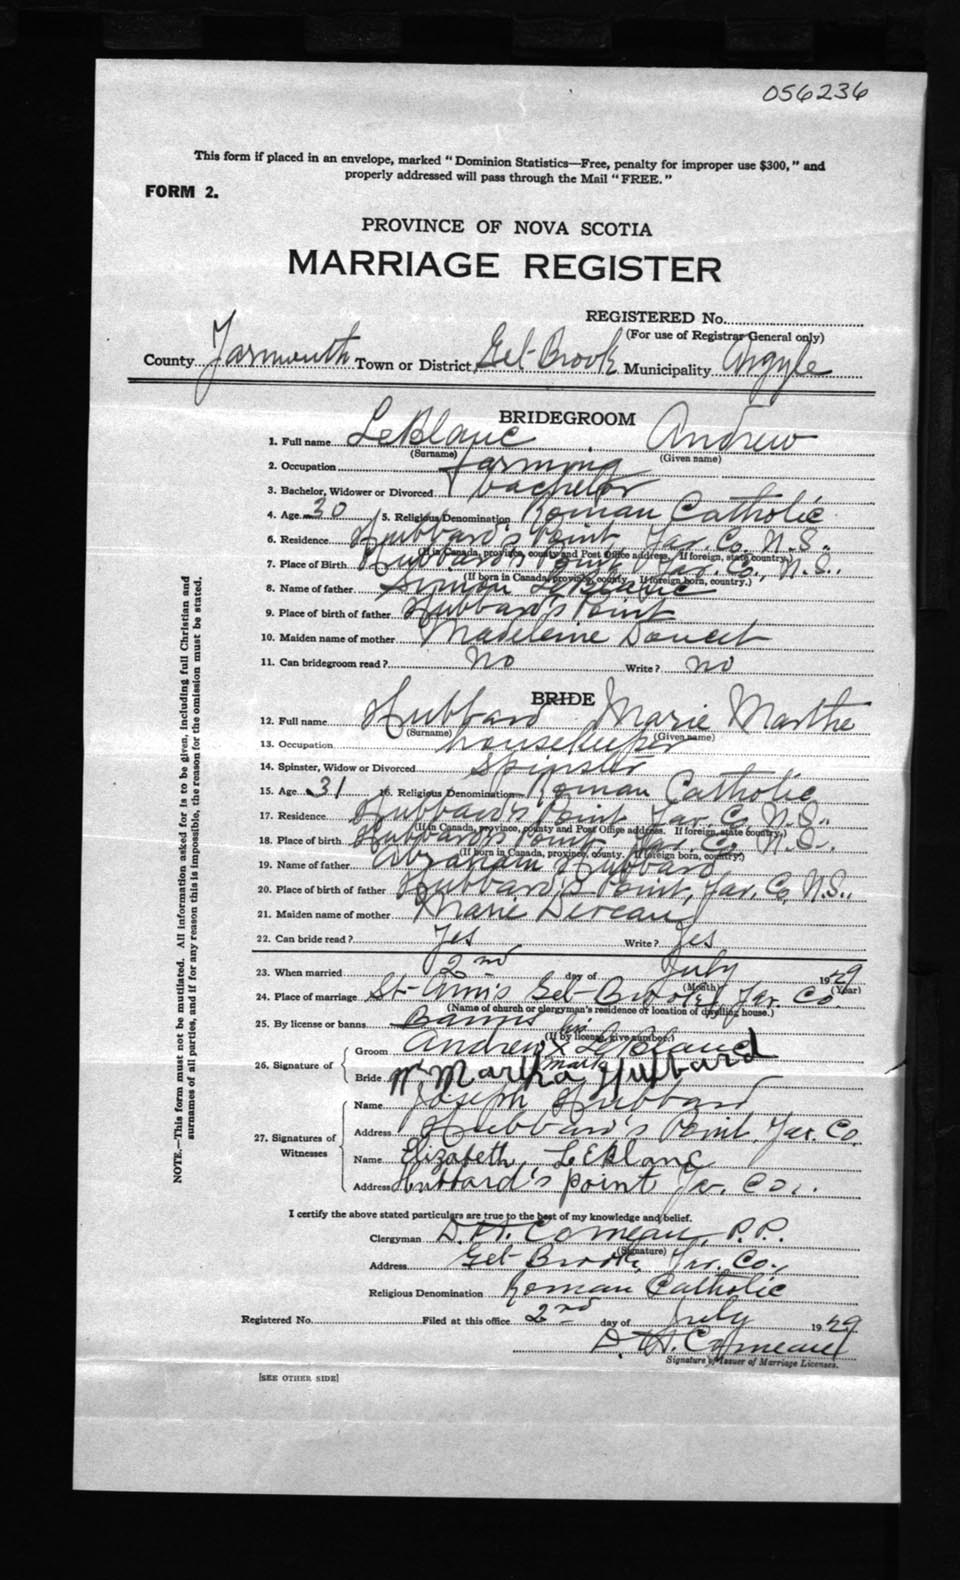 056236
This form if placed in an envelope, marked "Dominion Statistics—Free, penalty for improper use $300," and
properly addressed will pass through the Mail "FREE."
FORM 2.
PROVINCE OF NOVA SCOTIA
MARRIAGE REGISTER
REGISTERED No.
(For use of Registrar General only)
County Yarmouth Town or District Eel-Brook Municipality Argyle
BRIDEGROOM
1. Full name LeBlanc Andrew
(Surname) (Given name)
2. Occupation farming
3. Bachelor, Widower or Divorced bachelor
4. Age 30 5. Religious Denomination Roman Catholic
6. Residence Hubbard's Point Yar. Co. N.S.
(If in Canada, province, county and Post Office address. If foreign, state country.)
7. Place of Birth Hubbard's Point Yar. Co., N.S.
(If born in Canada, province, county. If foreign born, country.)
8. Name of father Simon LeBlanc
9. Place of birth of father Hubbard's Point
10. Maiden name of mother Madeleine Doucet
11. Can bridegroom read? No Write? no
BRIDE
12. Full name Hubbard Marie Marthe
(Surname) (Given name)
13. Occupation housekeeper
14. Spinster, Widow or Divorced Spinster
15. Age 31 16. Religious Denomination Roman Catholic
17. Residence Hubbard's Point Yar. Co. N.S.
(If in Canada, province, county and Post Office address. If foreign, state country.)
18. Place of birth Hubbard's Point Yar. Co. N.S.
(If born in Canada, province, county. If foreign born, country.)
19. Name of father Abraham Hubbard
20. Place of birth of father Hubbard's Point, Yar. Co. N.S.
21. Maiden name of mother Marie Deveau
22. Can bride read? Yes Write? Yes
23. When married 2nd day of July 1929
(Month) (Year)
24. Place of marriage St-Ann's Eel-Brook, Yar. Co.
(Name of church or clergyman's residence or location of dwelling house.)
25. By license or banns Banns
(If by license, give number.)
26. Signature of
Groom Andrew his X mark LeBlanc
Bride Martha Hubbard
27. Signatures of Witnesses
Name Joseph Hubbard
Address Hubbard's Point, Yar. Co.
Name Elizabeth LeBlanc
Address Hubbard's point Yar. Co.
I certify the above stated particulars are true to the best of my knowledge and belief.
Clergyman D. H. Comeau, P.P.
(Signature)
Address Eel-Brook, Yar. Co.,
Religious Denomination Roman Catholic
Registered No. Filed at this office 2nd day of July 1929
D. H. Comeau
Signature of Issuer of Marriage Licenses.
[SEE OTHER SIDE]
NOTE.—This form must not be mutilated. All information asked for is to be given, including full Christian and
surnames of all parties, and if for any reason this is impossible, the reason for the omission must be stated.